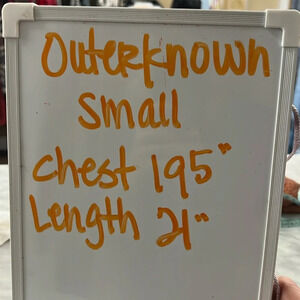 Outerknown
Small
Chest 195"
Length 21"